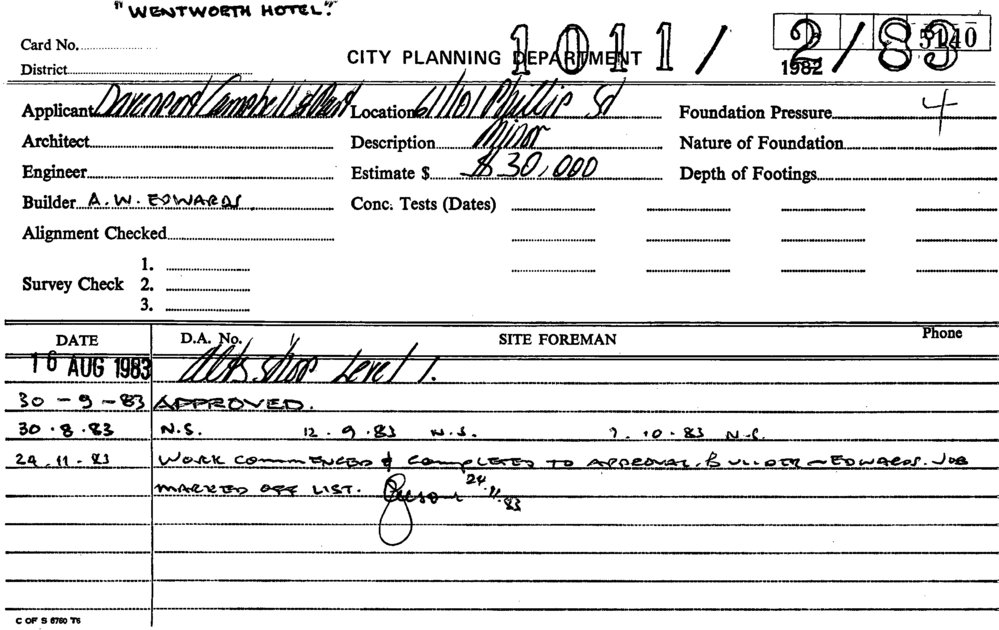 "WENTWORTH HOTEL."
Card No.
CITY PLANNING DEPARTMENT 1011 / 2 / 83
5140
District
1982
Applicant Davenport Campbell & Location 61/101 Phillip St Foundation Pressure 4
Architect Description Minor Nature of Foundation
Engineer Estimate $ $30,000 Depth of Footings
Builder A.W. EDWARDS Conc. Tests (Dates)
Alignment Checked
1.
Survey Check 2.
3.
DATE D.A. No. SITE FOREMAN Phone
16 AUG 1983 Alts shop Level 1.
30-9-83 APPROVED.
30.8.83 N.S. 12.9.83 N.S. 7.10.83 N.S.
24.11.83 WORK COMMENCED & COMPLETED TO APPROVAL. BUILDER - EDWARDS. JOB
MARKED OFF LIST. 24.11.83
C OF S 6760 T6